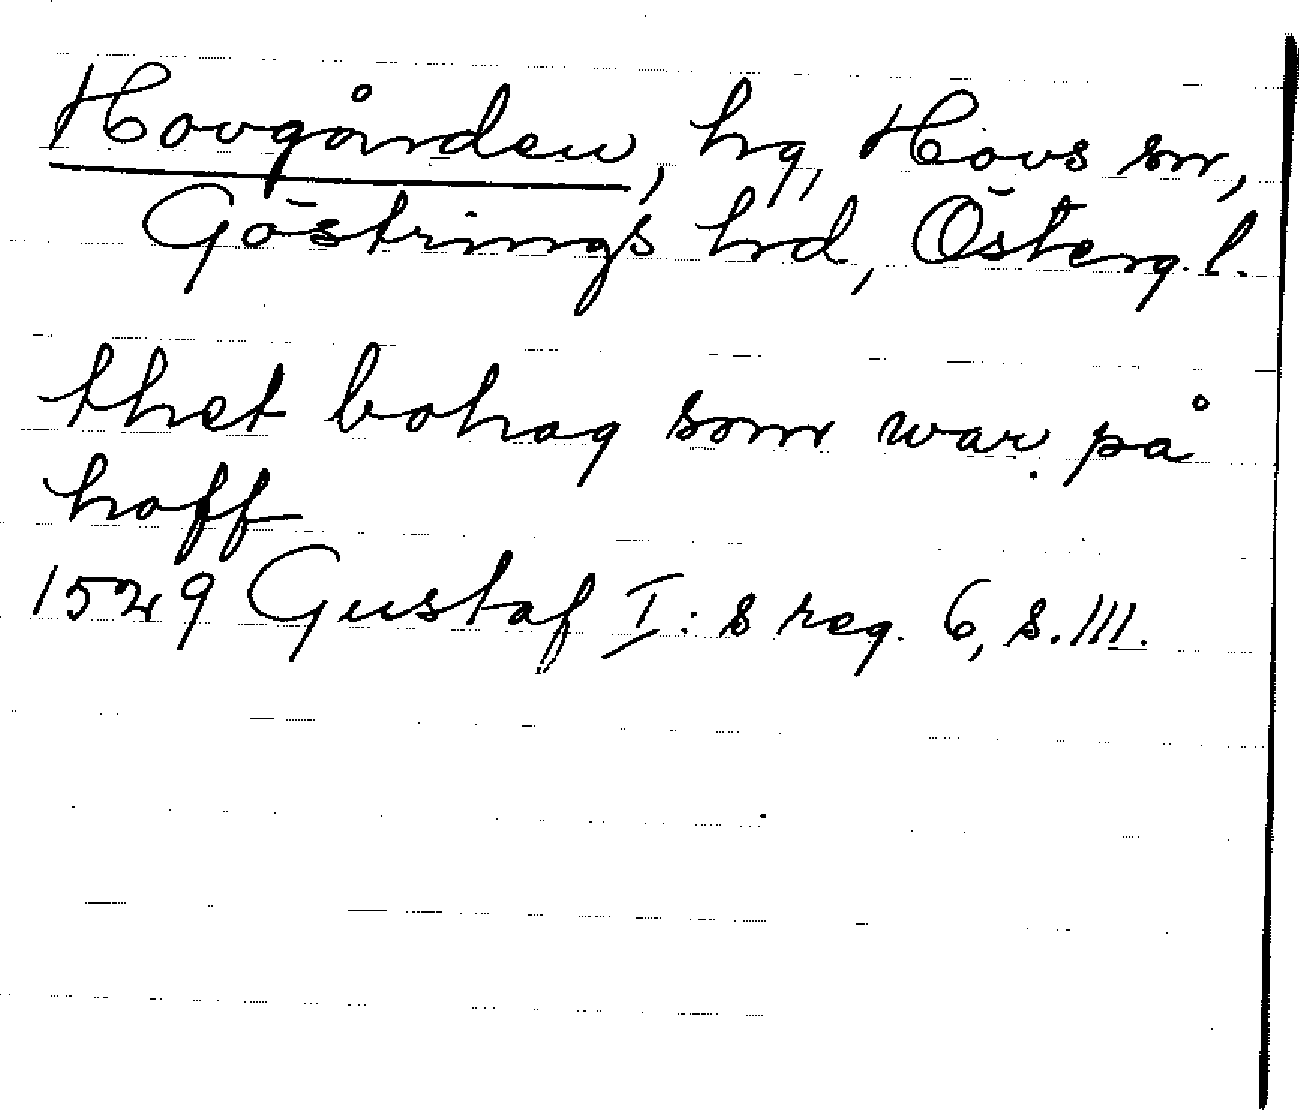 Hovgården, hg, Hovs sn,
Göstrings hrd, Österg. l.
thet bohag som war på
hoff
1529 Gustaf I:s reg. 6, s. 111.